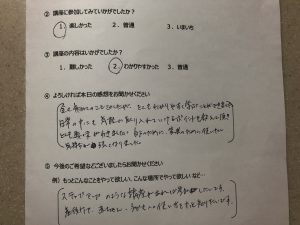 ② 講座に参加してみていかがでしたか?
1. 楽しかった 2. 普通 3. いまいち
③ 講座の内容はいかがでしたか?
1. 難しかった 2. わかりやすかった 3. 普通
④ よろしければ本日の感想をお聞かせください
とてもわかりやすく学ぶことができました
日常の中にも気軽に取り入れていけるポイントを教えて頂き
とても
自分のために、家族のために使いたい
気持ちが強くなりました
⑤ 今後のご希望などございましたらお聞かせください
例)もっとこんなことをやって欲しい、こんな場所でやって欲しいなど…
ステップアップのような講座があれば参加したいです。
使い方をもっと知りたいです。